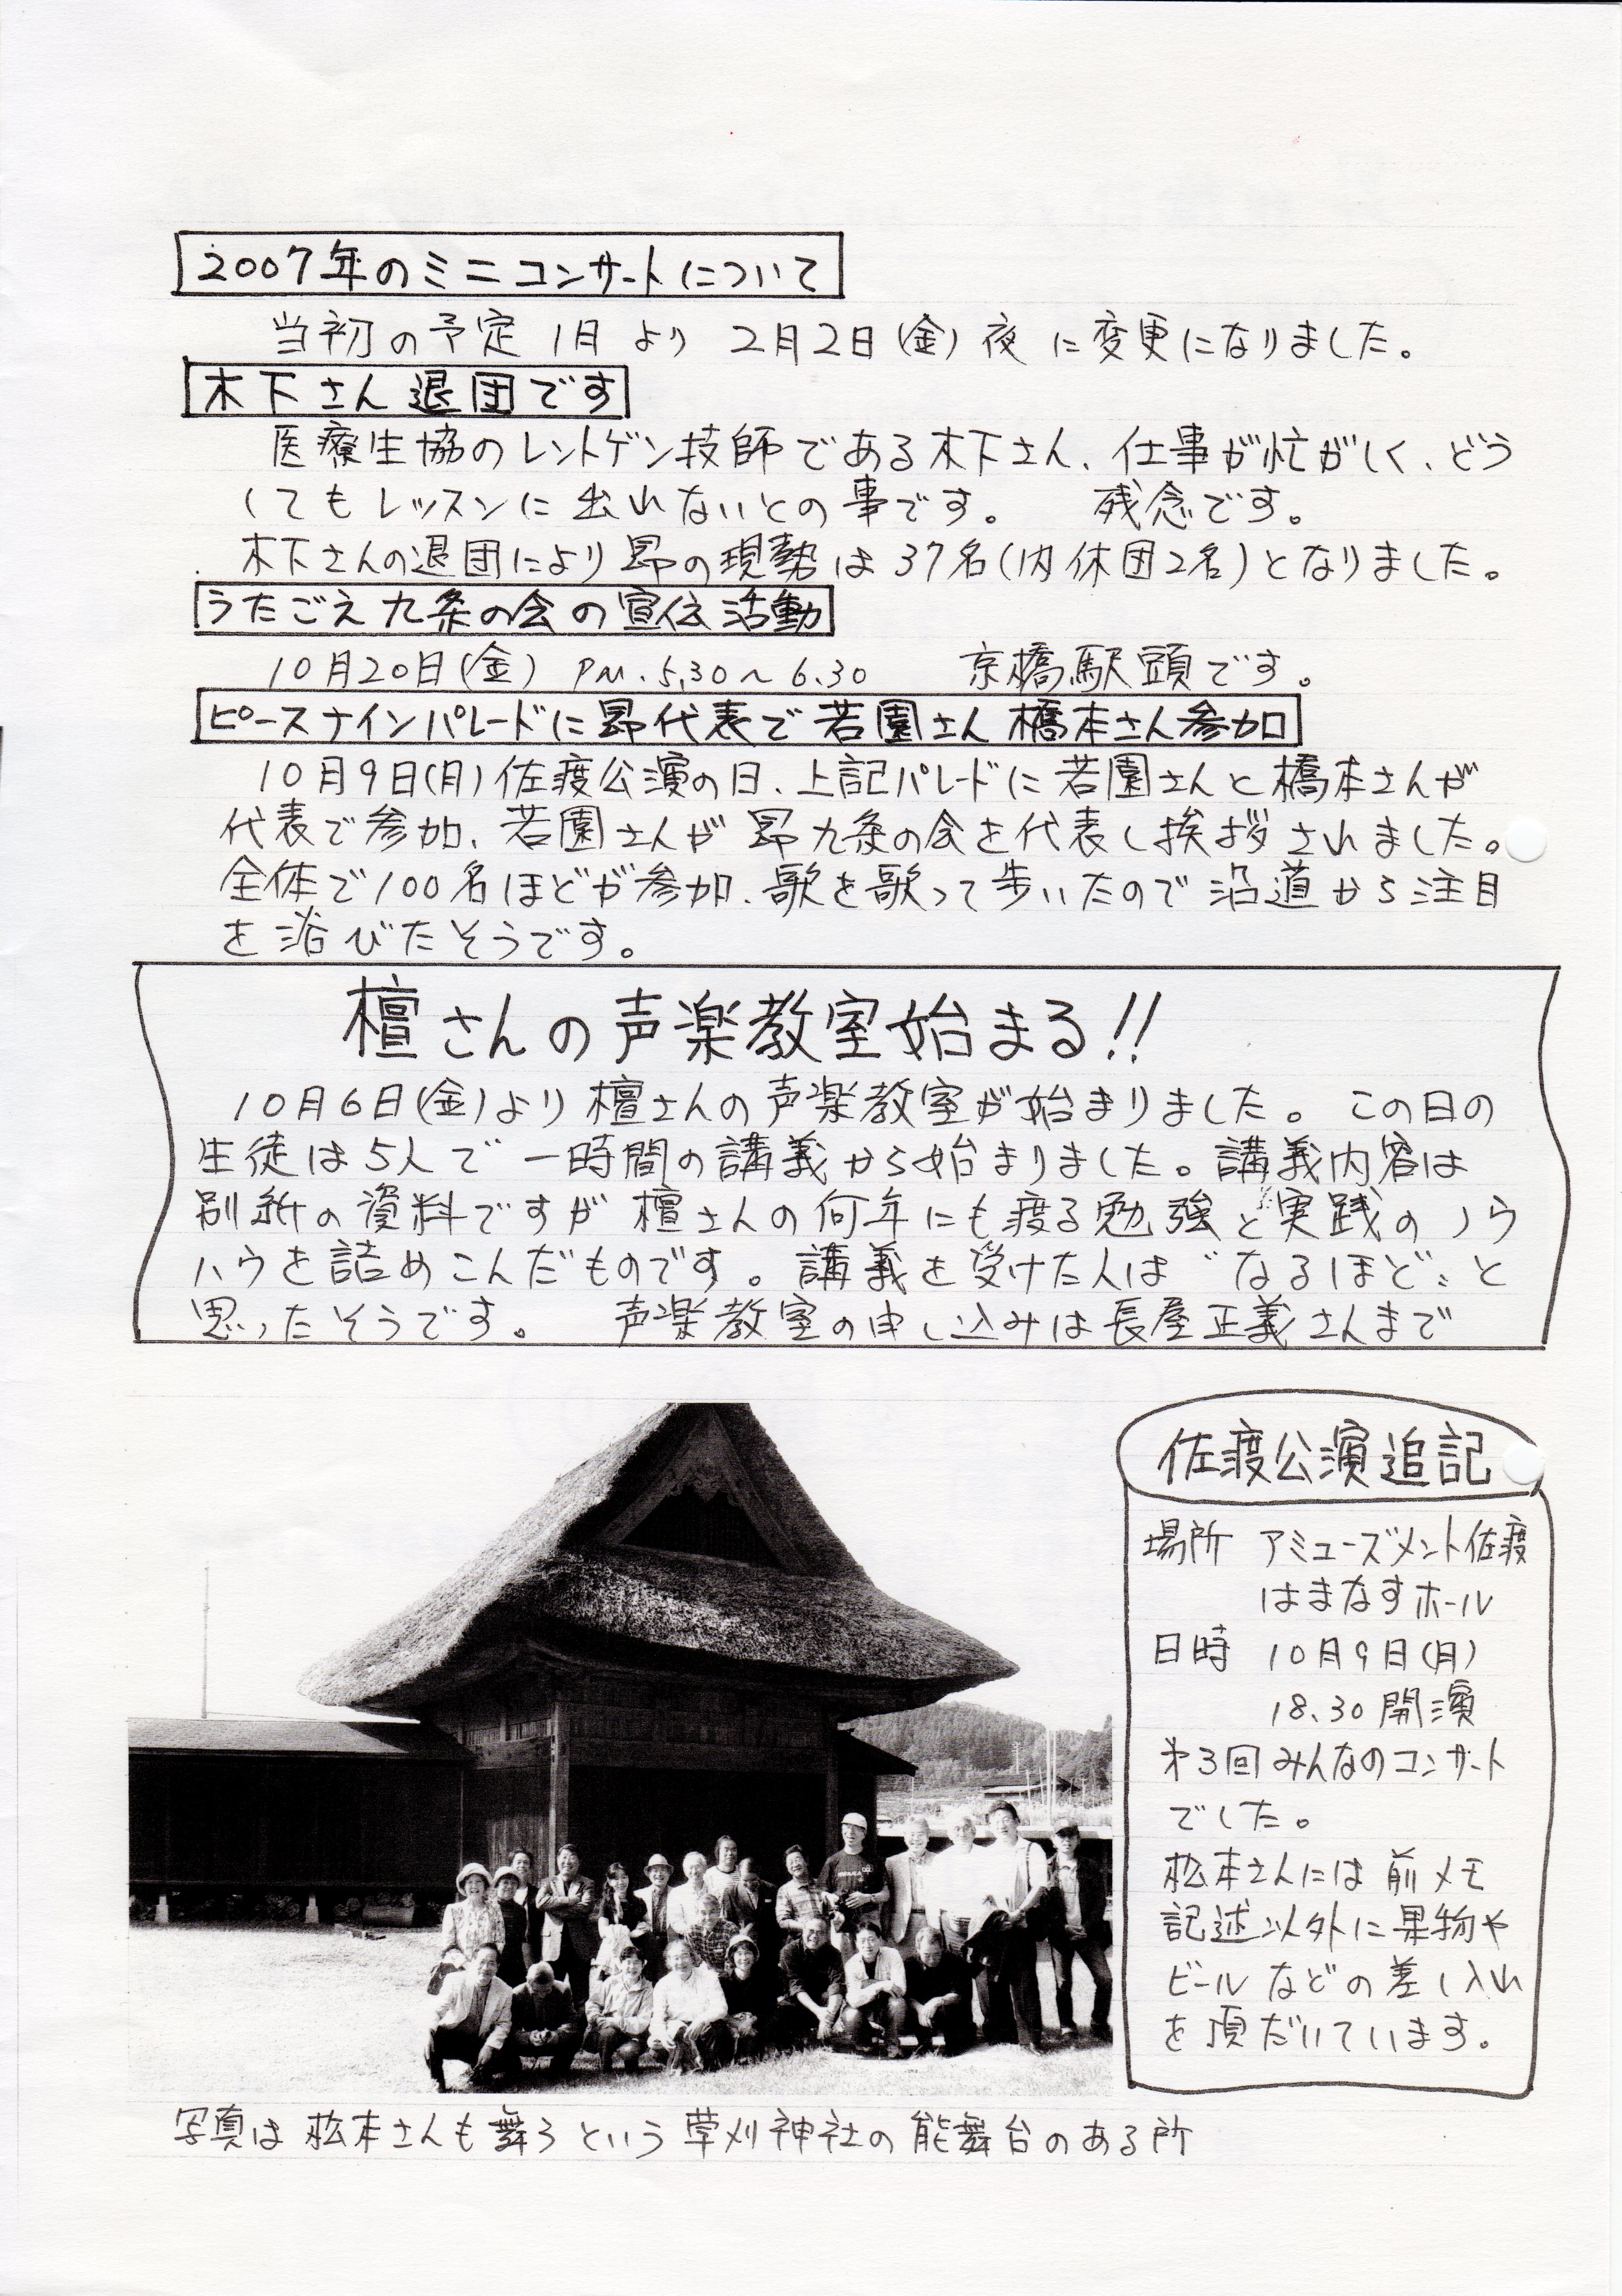 2007年のミニコンサートについて
当初の予定 1月 より 2月2日(金)夜 に変更になりました。
木下さん 退団です
医療生協のレントゲン技師である木下さん、仕事が忙がしく、どう
してもレッスンに出れないとの事です。 残念です。
木下さんの退団により昴の現勢は37名(内休団2名)となりました。
うたごえ九条の会の宣伝活動
10月20日(金) PM.5,30〜6.30 京橋駅頭です。
ピースナインパレードに昴代表で若園さん橋本さん参加
10月9日(月)佐渡公演の日、上記パレードに若園さんと橋本さんが
代表で参加、若園さんが昴九条の会を代表し挨拶されました。
全体で100名ほどが参加、歌を歌って歩いたので沿道から注目
を浴びたそうです。
檀さんの声楽教室始まる!!
10月6日(金)より檀さんの声楽教室が始まりました。この日の
生徒は5人で一時間の講義から始まりました。講義内容は
別紙の資料ですが檀さんの何年にも渡る勉強と実践のノウ
ハウを詰めこんだものです。講義を受けた人は〝なるほど〟と
思ったそうです。 声楽教室の申し込みは長屋正義さんまで
佐渡公演追記
場所 アミューズメント佐渡
はまなすホール
日時 10月9日(月)
18.30開演
第3回みんなのコンサート
でした。
松本さんには前メモ
記述以外に果物や
ビールなどの差し入れ
を頂だいています。
写真は松本さんも舞うという草刈神社の能舞台のある所